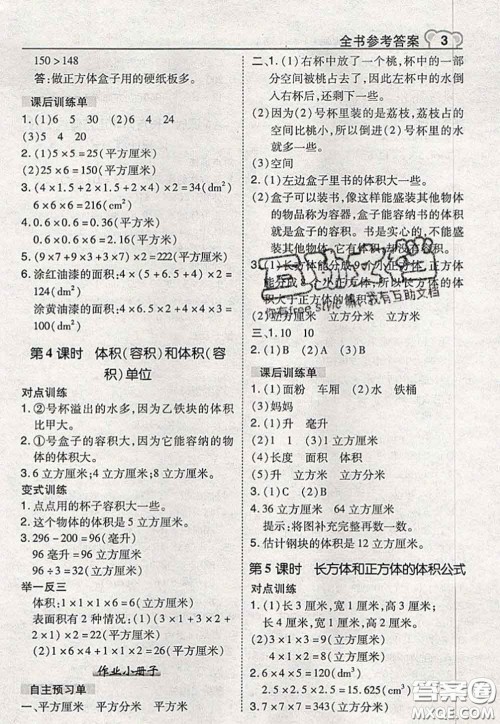 全书参考答案 3
150>148
答:做正方体盒子用的硬纸板多。
课后训练单
1.(1)6 5 30 (2)6 4 24
(3)5 4 20
2.(1)5×5=25(平方厘米)
(2)25×6=150(平方厘米)
3.(4×1.5+2×1.5+2×4)×2=34(dm²)
6×6×6=216(dm²)
4.0.6×0.6=0.36(平方米)
0.6×0.6×6=2.16(平方米)
5.(9×7+9×3+3×7)×2=222(平方厘米)
6.涂红油漆的面积:4×(5+4.5)×2+6×8
=124(dm²)
涂黄油漆的面积:4×(2+3)×2+6×10
=100(dm²)
第4课时 体积(容积)和体积(容
积)单位
对点训练
1.②号杯溢出的水多,因为乙铁块的体积
比甲大。
2.①号盒子的容积大,因为它能容纳的物
体的体积大。
3.6立方厘米;4立方厘米;8立方厘米。
变式训练
1.点点用的杯子容积大一些。
2.这个物体的体积是5立方厘米。
3.296-200=96(毫升)
96毫升=96立方厘米
举一反三
体积:1×1×1×6=6(立方厘米)
表面积有2种可能:(1)(3×1+3×2+
1×2)×2=22(平方厘米) (2)(1×
5+2×4)×2=26(平方厘米)
作业小册子
自主预习单
一、平方厘米 平方分米 平方米
二、1.(1)右杯中放了一个桃,杯中的一部
分空间被桃占去了,因此左杯中的水倒
入右杯后,还剩下一些。
(2)因为(2)号杯里装的是荔枝,荔枝占的
空间比桃小,所以(2)号杯里的水就
多一些。
(3)空间
2.(1)左边盒子里书的体积大一些。
(2)盒子可以装书,像这样能盛装其他物体
的物品称为容器,盒子能容纳书的体积
就是盒子的容积。书是实心的,不能盛
装其他物体,它有体积,却没有容积。
(2)立方厘米 立方分米 立方米
三、1.10 10
2.(1)B (2)A (3)A
课后训练单
1.(1)面粉 车厢 (2)水 铁桶
(3)妈妈
2.(1)升 毫升
(2)平方厘米 立方厘米
(3)立方米
(4)长度 面积 体积
(5)升 立方米 立方分米
3.(1)(2) (2)B
4.36立方厘米 64立方厘米
提示:将图补充完整成大正方体。
5.估计钢块的体积是6立方厘米。
第5课时 长方体和正方体的体积公式
对点训练
1.(1)长3厘米,宽1厘米,高1厘米。
(2)长4厘米,宽3厘米,高2厘米。
2.5×4×3=60(立方厘米)
2.5×2.5×2.5=15.625(cm³)
3.7×7×7=343(立方厘米)
答案圈
MXQE.COM